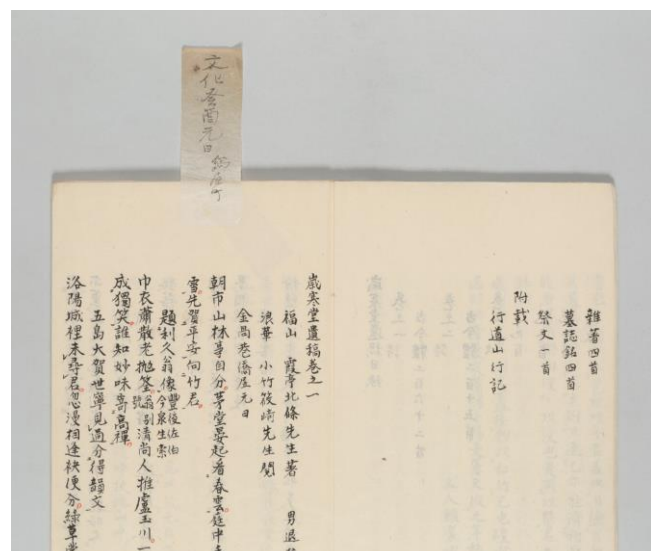 文化癸酉元日
雜著四首
墓誌銘四首
祭文一首
附載
行道山行記
歳寒堂遺稿巻之一
福山 霞亭北條先生著 男退
浪華 小竹筱崎先生閲
金昌巷僑居元日
朝市山林等自分茅堂晏起看春雲庭中
雪先賀平安向竹君
題利久翁像豐後佐伯今泉生索
巾衣蕭散老抛筌翁別號清尚人推盧玉川一
成獨笑誰知妙味寄高禪
五島大賀世寧見過分得韻文
洛陽城裡未尋君忽漫相逢袂便分緑草